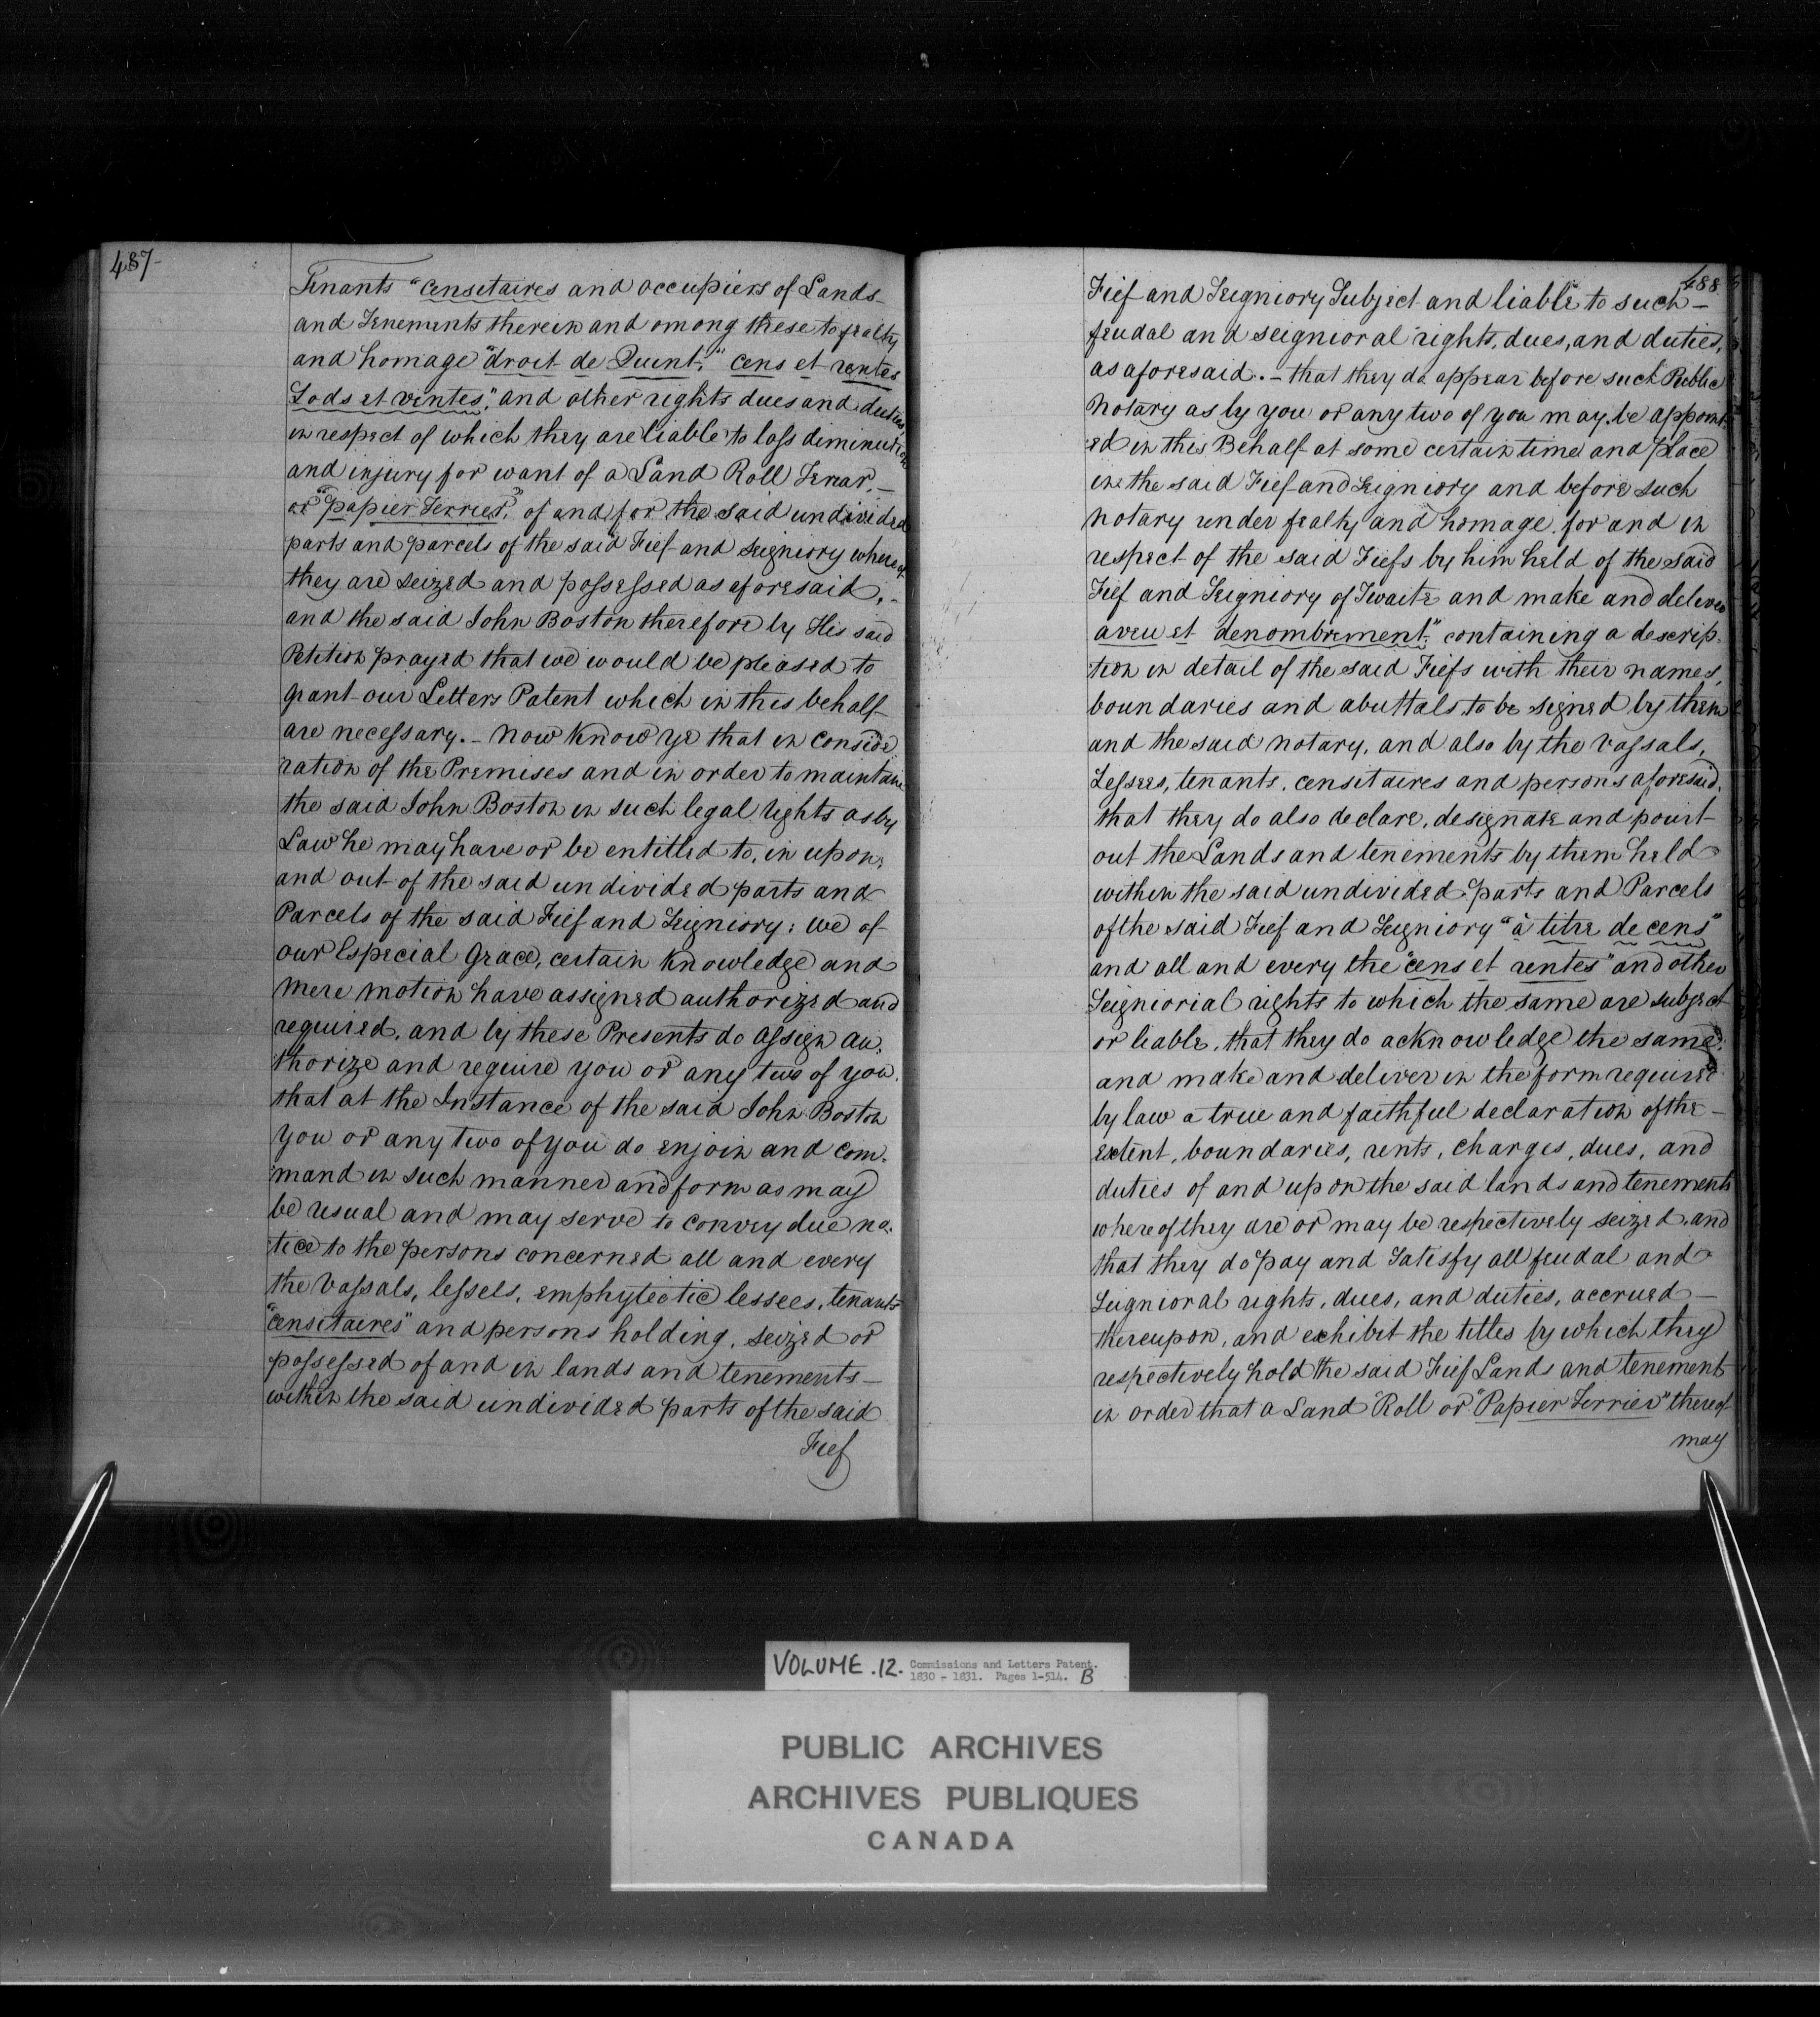 487
Tenants "censitaires and occupiers of Lands
and Tenements therein and among these to fealty
and homage "droit de Quint," "cens et rentes
Lods et ventes," and other rights dues and duties,
in respect of which they are liable to loss diminution
and injury for want of a Land Roll Terrar,—
or "papier Terrier," of and for the said undivided
parts and parcels of the said Fief and Seigniory whereof
they are seized and possessed as aforesaid,-
and the said John Boston therefore by His said
Petition prayed that we would be pleased to
grant our Letters Patent which in this behalf
are necessary.- Now Know ye that in conside
ration of the Premises and in order to maintain
the said John Boston in such legal rights as by
Law he may have or be entitled to, in upon,
and out of the said undivided parts and
Parcels of the said Fief and Seigniory; we of
our Especial Grace, certain Knowledge and
mere motion have assigned authorized and
required, and by these Presents do assign au-
thorize and require you or any two of you.
that at the Instance of the said John Boston
you or any two of you do enjoin and com-
mand in such manner and form as may
be usual and may serve to convey due no-
tice to the persons concerned all and every
the Vassals, lessels, emphyteotic lessees, tenants
"censitaires" and persons holding, seized or
possessed of and in lands and tenements—
within the said undivided parts of the said
Fief
488
Fief and Seigniory Subject and liable to such—
feudal and seignioral rights, dues, and duties,
as aforesaid.- that they do appear before such Public
Notary as by you or any two of you may be appoint-
ed in this Behalf at some certain time and place
in the said Fief and Seigniory and before such
notary render fealty and homage for and in
respect of the said Fiefs by him held of the said
Fief and Seigniory of Twaite and make and deliver
aveu et denombrement", containing a descrip-
tion in detail of the said Fiefs with their names,
boundaries and abuttals to be signed by them
and the said notary, and also by the vassals,
Lessees, tenants, censitaires and persons aforesaid,
that they do also declare, designate and point
out the Lands and tenements by them held
within the said undivided parts and Parcels
of the said Fief and Seigniory "à titre de cens"
and all and every the "cens et rentes" and other
Seigniorial rights to which the same are subject
or liable, that they do acknowledge the same,
and make and deliver in the form required
by law a true and faithful declaration of the—
extent, boundaries, rents, charges, dues, and
duties of and upon the said lands and tenements
whereof they are or may be respectively seized, and
that they do pay and Satisfy all feudal and
Seignioral rights, dues, and duties, accrued—
thereupon, and exhibit the titles by which they
respectively hold the said Fief Lands and tenements
in order that a Land Roll or "Papier Terrier" thereof
may
VOLUME .12. Commissions and Letters Patent.
1830 - 1831. Pages 1-514. B
PUBLIC ARCHIVES
ARCHIVES PUBLIQUES
CANADA